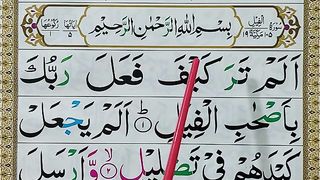 سُوْرَةُ الْفِيْل مَكِّيَّة ١٠٥ ١٩
بِسْمِ اللهِ الرَّحْمٰنِ الرَّحِيْمِ
اٰيَاتُهَا ٥ رُكُوْعُهَا ١
اَلَمْ تَرَ كَيْفَ فَعَلَ رَبُّكَ
بِاَصْحٰبِ الْفِيْلِ ؕ ۝١ اَلَمْ يَجْعَلْ
كَيْدَهُمْ فِيْ تَضْلِيْلٍ ۙ ۝٢ وَّاَرْسَلَ